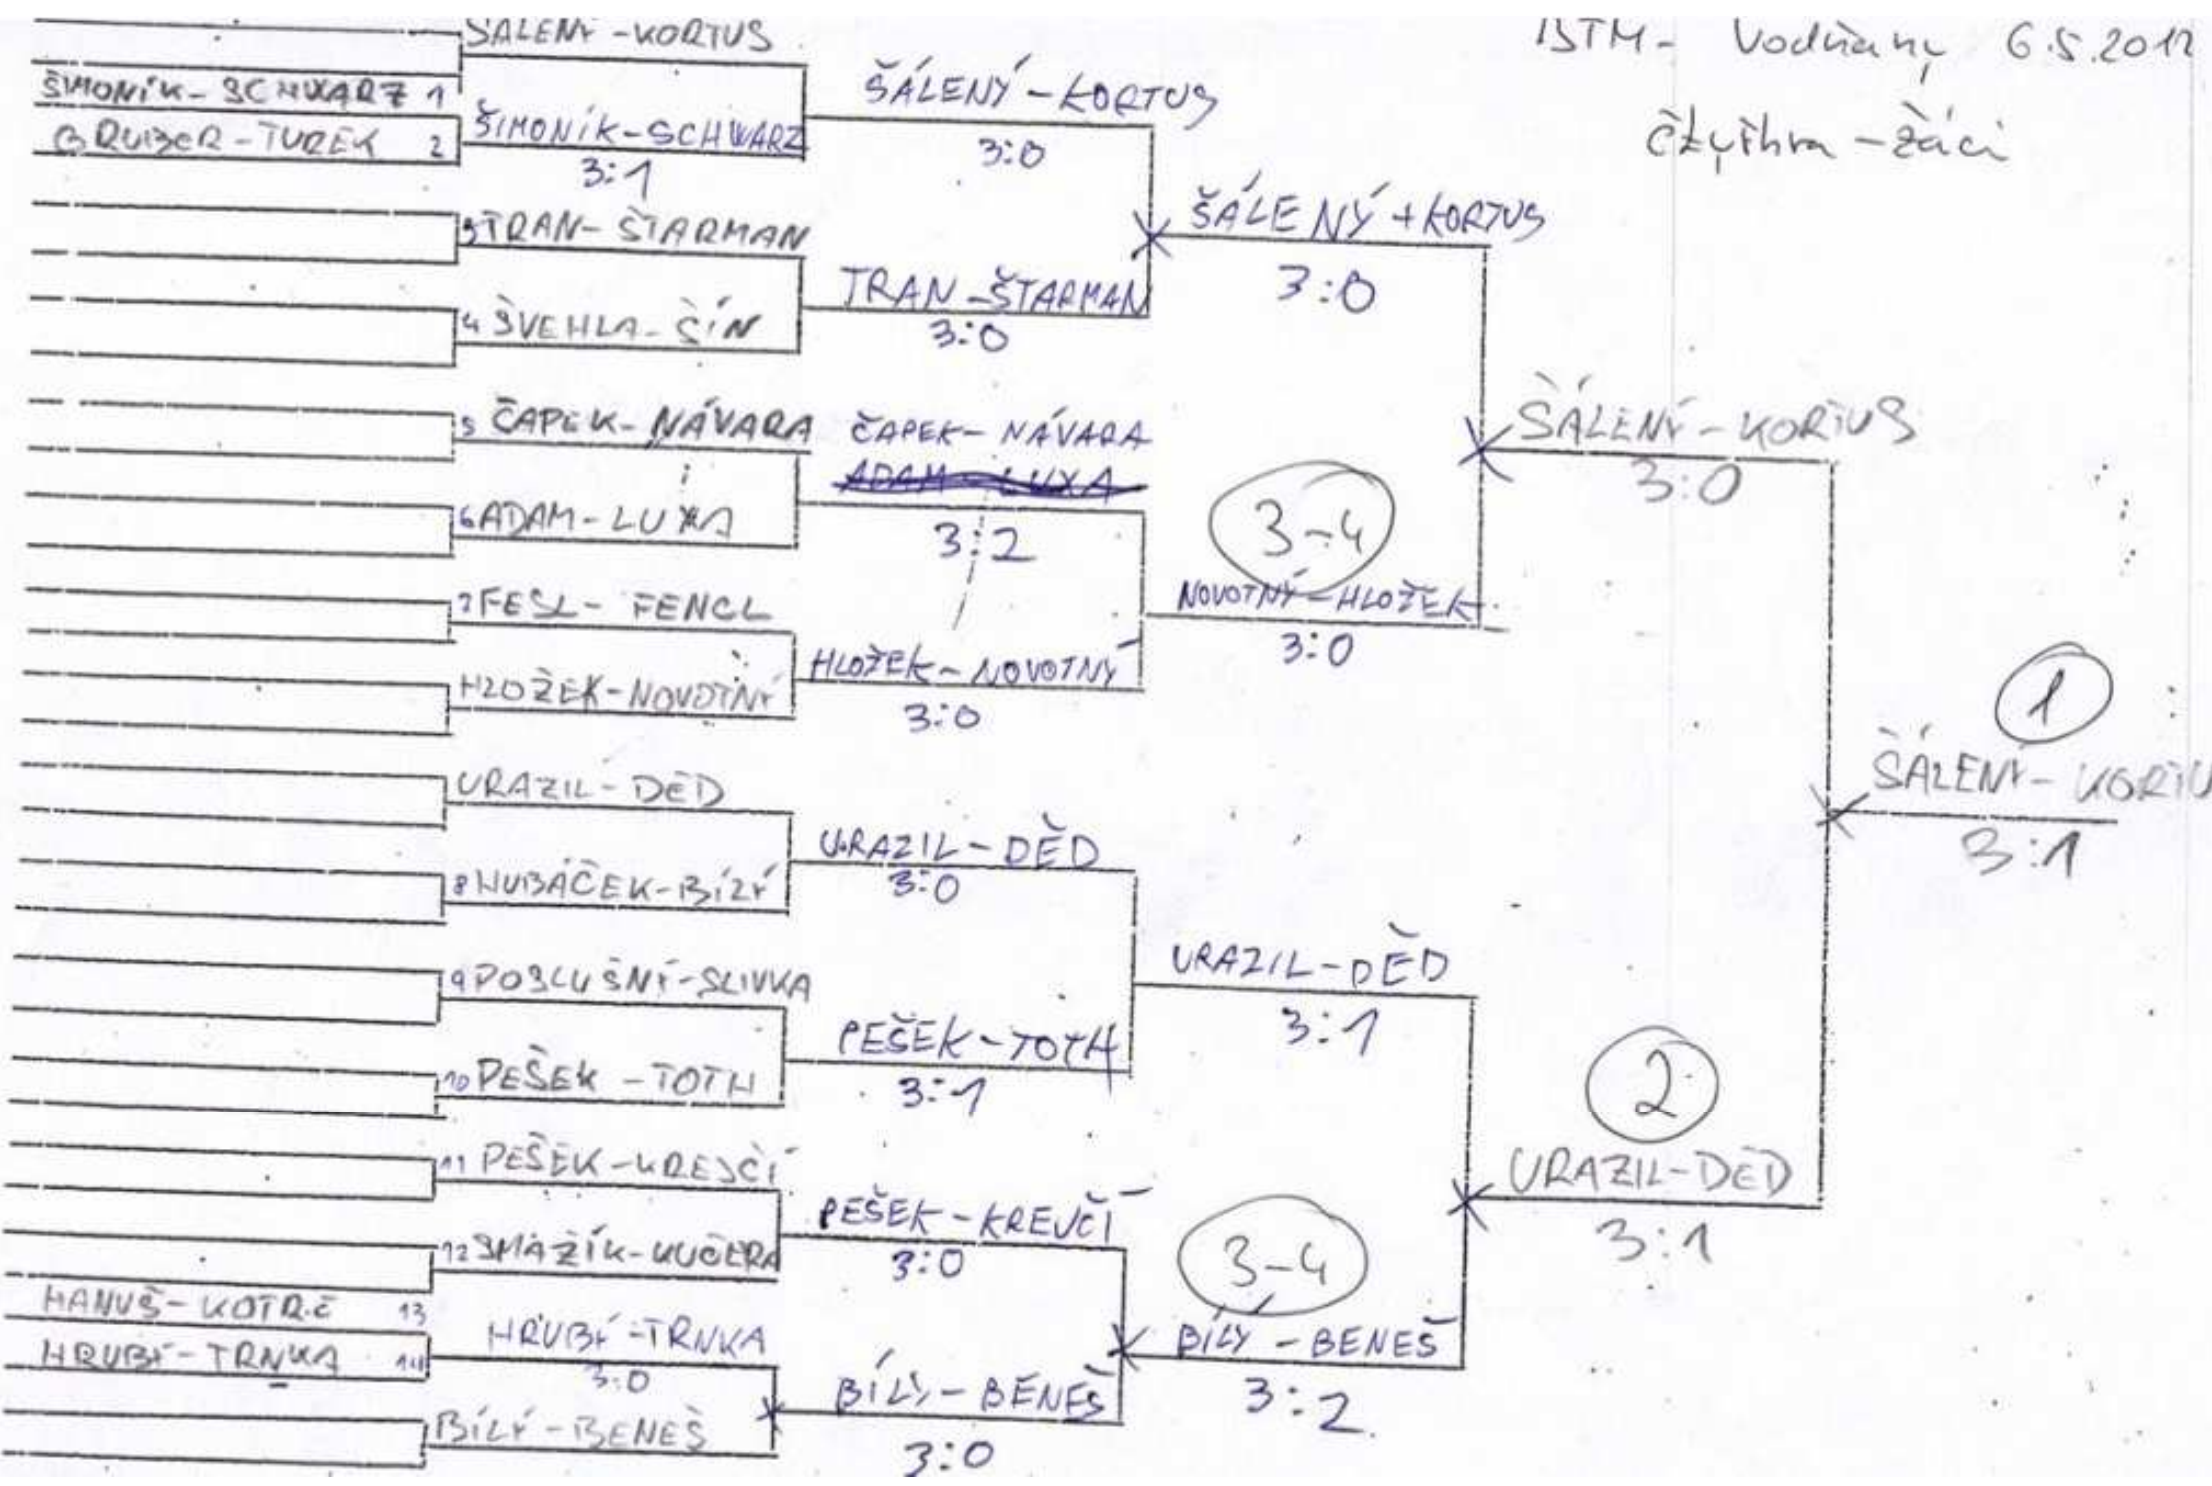 BTM - Vodňany 6.5.2012
čtyřhra - žáci
ŠÁLENÝ - KORTUS
ŠIMONÍK - SCHWARZ 1
GRUBER - TUREK 2
ŠIMONÍK - SCHWARZ
3:1
3 TRAN - ŠTARMAN
4 ŠVEHLA - ŠÍN
5 ČAPEK - NÁVARA
6 ADAM - LUXA
7 FESL - FENCL
HLOŽEK - NOVOTNÝ
URAZIL - DĚD
8 HUBÁČEK - BÍLÝ
9 POSLUŠNÝ - SLIVKA
10 PEŠEK - TOTH
11 PEŠEK - KREJČÍ
12 SMAŽÍK - KUČERA
HANUŠ - KOTRČ 13
HRUBÝ - TRNKA 14
HRUBÝ - TRNKA
3:0
BÍLÝ - BENEŠ
ŠÁLENÝ - KORTUS
3:0
TRAN - ŠTARMAN
3:0
ČAPEK - NÁVARA
ADAM - LUXA
3:2
HLOŽEK - NOVOTNÝ
3:0
URAZIL - DĚD
3:0
PEŠEK - TOTH
3:1
PEŠEK - KREJČÍ
3:0
BÍLÝ - BENEŠ
3:0
ŠÁLENÝ + KORTUS
3:0
3-4
NOVOTNÝ - HLOŽEK
3:0
URAZIL - DĚD
3:1
3-4
BÍLÝ - BENEŠ
3:2
ŠÁLENÝ - KORTUS
3:0
2
URAZIL - DĚD
3:1
1
ŠÁLENÝ - KORTU
3:1